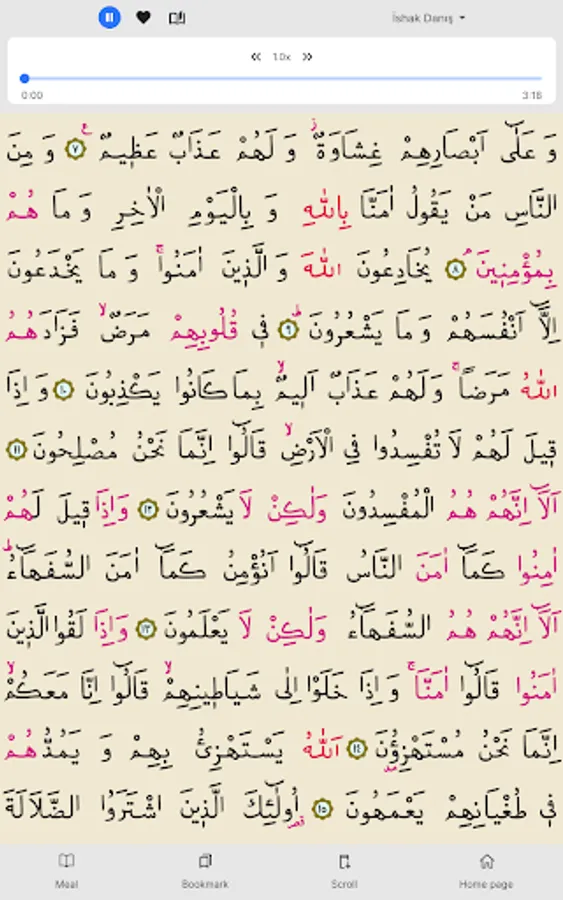 İshak Danış
1.0x
0:00 3:18
وَ عَلٰٓى اَبْصَارِهِمْ غِشَاوَةٌۘ وَ لَهُمْ عَذَابٌ عَظ۪يمٌ ﴿٧﴾ وَ مِنَ
النَّاسِ مَنْ يَقُولُ اٰمَنَّا بِاللّٰهِ وَ بِالْيَوْمِ الْاٰخِرِ وَ مَا هُمْ
بِمُؤْمِن۪ينَۢ ﴿٨﴾ يُخَادِعُونَ اللّٰهَ وَ الَّذ۪ينَ اٰمَنُواۚ وَ مَا يَخْدَعُونَ
اِلَّٓا اَنْفُسَهُمْ وَ مَا يَشْعُرُونَۜ ﴿٩﴾ ف۪ي قُلُوبِهِمْ مَرَضٌۙ فَزَادَهُمُ
اللّٰهُ مَرَضاًۚ وَلَهُمْ عَذَابٌ اَل۪يمٌۙ بِمَا كَانُوا يَكْذِبُونَ ﴿١٠﴾ وَ اِذَا
ق۪يلَ لَهُمْ لَا تُفْسِدُوا فِي الْاَرْضِۙ قَالُٓوا اِنَّمَا نَحْنُ مُصْلِحُونَ ﴿١١﴾
اَلَٓا اِنَّهُمْ هُمُ الْمُفْسِدُونَ وَلٰكِنْ لَا يَشْعُرُونَ ﴿١٢﴾ وَاِذَا ق۪يلَ لَهُمْ
اٰمِنُوا كَمَٓا اٰمَنَ النَّاسُ قَالُٓوا اَنُؤْمِنُ كَمَٓا اٰمَنَ السُّفَهَٓاءُۜ
اَلَٓا اِنَّهُمْ هُمُ السُّفَهَٓاءُ وَلٰكِنْ لَا يَعْلَمُونَ ﴿١٣﴾ وَاِذَا لَقُوا الَّذ۪ينَ
اٰمَنُوا قَالُٓوا اٰمَنَّاۚ وَ اِذَا خَلَوْا اِلٰى شَيَاط۪ينِهِمْۙ قَالُٓوا اِنَّا مَعَكُمْۙ
اِنَّمَا نَحْنُ مُسْتَهْزِؤُ۫نَ ﴿١٤﴾ اَللّٰهُ يَسْتَهْزِئُ بِهِمْ وَ يَمُدُّهُمْ
ف۪ي طُغْيَانِهِمْ يَعْمَهُونَ ﴿١٥﴾ اُو۬لٰٓئِكَ الَّذ۪ينَ اشْتَرَوُا الضَّلَالَةَ
Meal Bookmark Scroll Home page